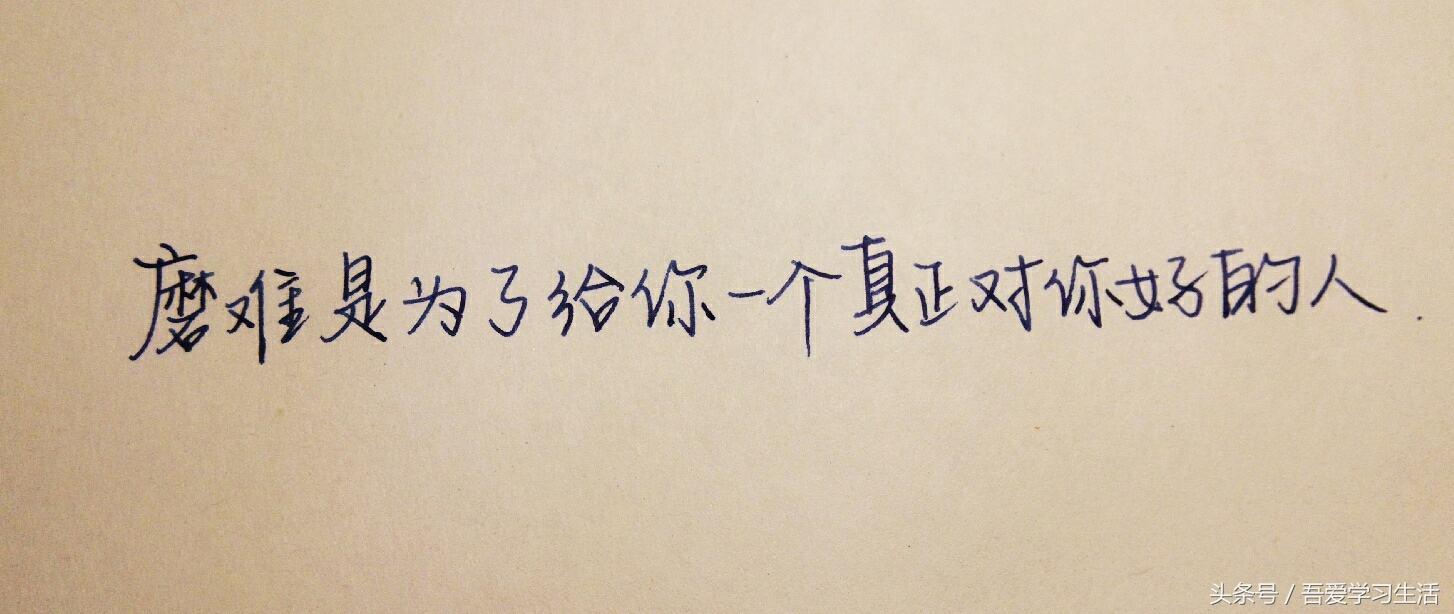 磨难是为了给你一个真正对你好的人.
头条号 / 吾爱学习生活